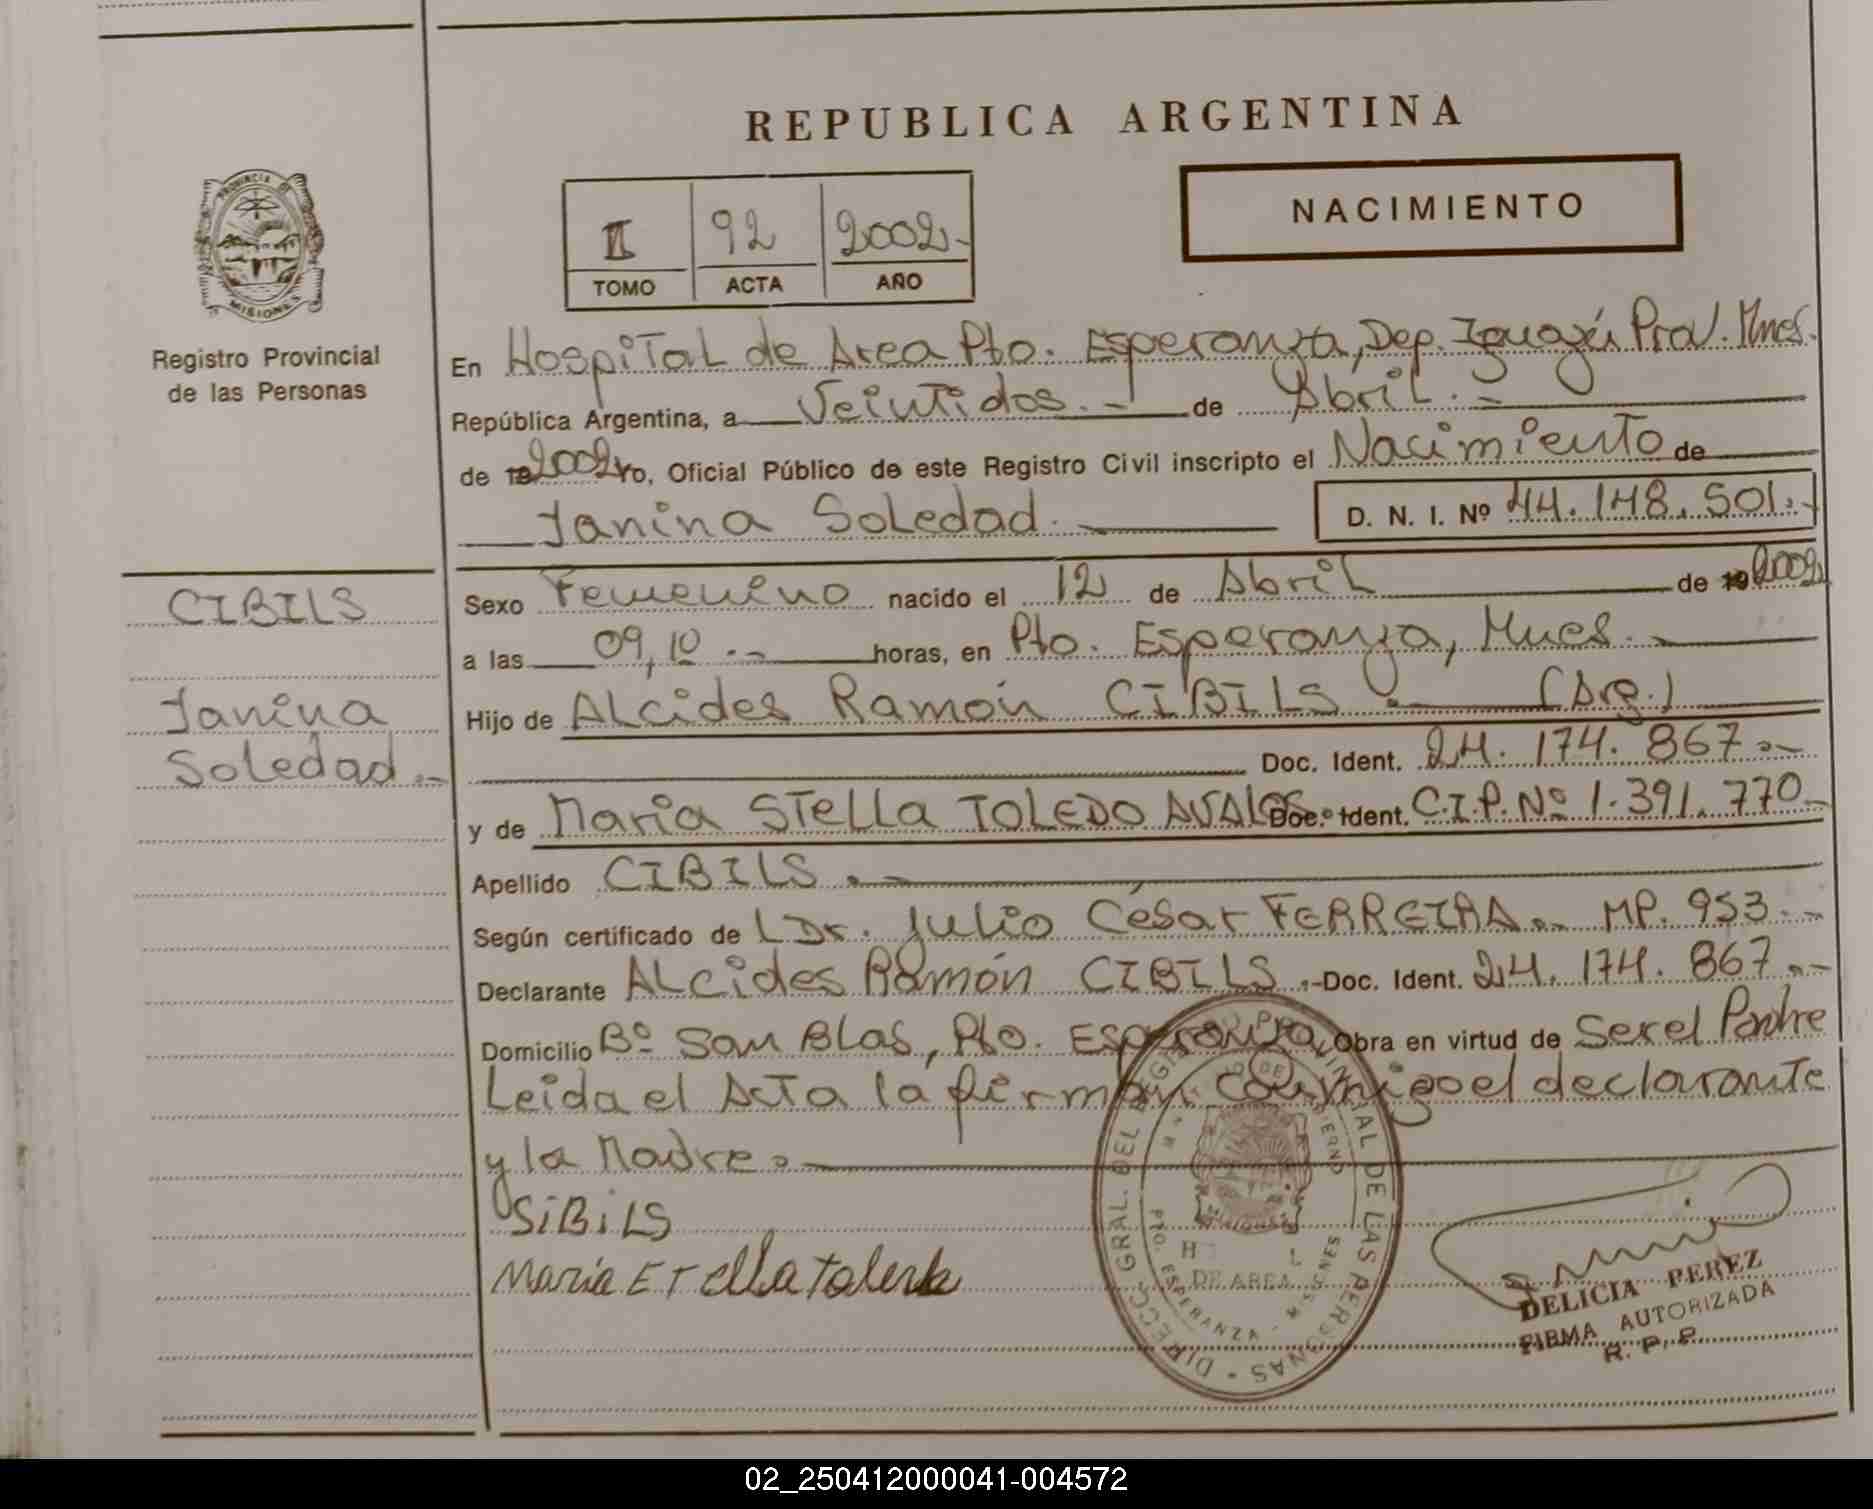 REPUBLICA ARGENTINA
PROVINCIA DE
MISIONES
Registro Provincial
de las Personas
II 92 2002.-
TOMO ACTA AÑO
NACIMIENTO
En Hospital de Area Pto. Esperanza, Dep. Iguazú Prov. Mnes.
República Argentina, a Veintidos.- de Abril.-
de 192002 Yo, Oficial Público de este Registro Civil inscripto el Nacimiento de
Janina Soledad.
D. N. I. Nº 44.148.501.-
CIBILS
Janina
Soledad.-
Sexo Femenino nacido el 12 de Abril de 192002
a las 09,10.- horas, en Pto. Esperanza, Mnes.-
Hijo de Alcides Ramón CIBILS.- (Arg.)
Doc. Ident. 24.174.867.-
y de Maria Stella TOLEDO AVALOS Doc. Ident. C.I.P. Nº 1.391.770.-
Apellido CIBILS.-
Según certificado de Dr. Julio César FERREIRA.- MP. 953.-
Declarante Alcides Ramón CIBILS.- Doc. Ident. 24.174.867.-
Domicilio Bº San Blas, Pto. Esperanza, Obra en virtud de Ser el Padre
Leida el Acta la firman conmigo el declarante
y la Madre.-
SiBiLS
Maria ETella Toledo
DIRECC. GRAL. DEL REGISTRO PROVINCIAL DE LAS PERSONAS
DE AREA
PTO. ESPERANZA - MISIONES
DELICIA PEREZ
FIRMA AUTORIZADA
R. P. P.
02_250412000041-004572